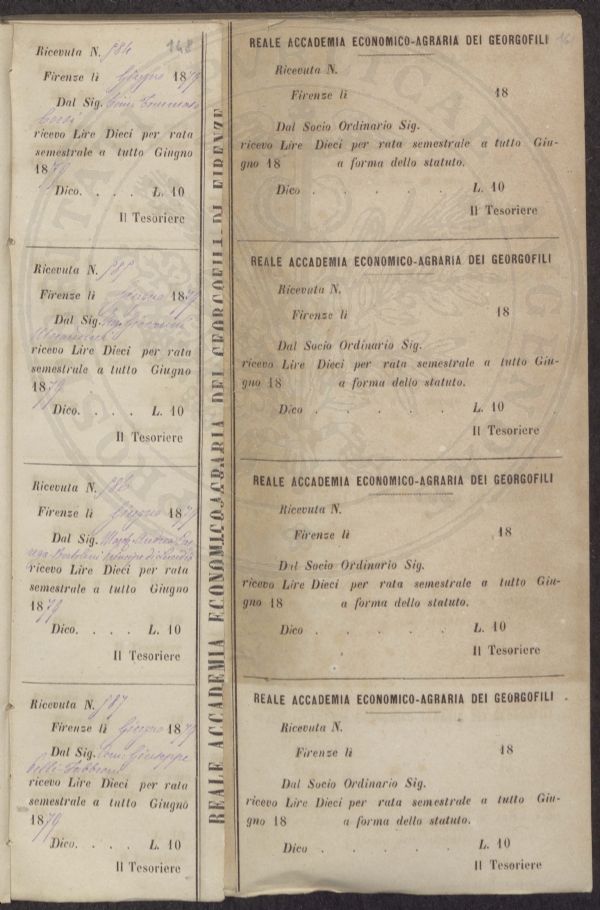 148
Ricevuta N. 984
Firenze li Giugno 1879
Dal Sig.
Corsi
ricevo Lire Dieci per rata
semestrale a tutto Giugno
1879
Dico. . . . L. 10
Il Tesoriere
Ricevuta N. 985
Firenze li Giugno 1879
Dal Sig.
ricevo Lire Dieci per rata
semestrale a tutto Giugno
1879
Dico. . . . L. 10
Il Tesoriere
Ricevuta N. 986
Firenze li Giugno 1879
Dal Sig.
ricevo Lire Dieci per rata
semestrale a tutto Giugno
1879
Dico. . . . L. 10
Il Tesoriere
Ricevuta N. 987
Firenze li Giugno 1879
Dal Sig. Giuseppe
ricevo Lire Dieci per rata
semestrale a tutto Giugno
1879
Dico. . . . L. 10
Il Tesoriere
REALE ACCADEMIA ECONOMICO-AGRARIA DEI GEORGOFILI DI FIRENZE
REALE ACCADEMIA ECONOMICO-AGRARIA DEI GEORGOFILI
Ricevuta N.
Firenze li 18
Dal Socio Ordinario Sig.
ricevo Lire Dieci per rata semestrale a tutto Giu-
gno 18 a forma dello statuto.
Dico . . . . . L. 10
Il Tesoriere
REALE ACCADEMIA ECONOMICO-AGRARIA DEI GEORGOFILI
Ricevuta N.
Firenze li 18
Dal Socio Ordinario Sig.
ricevo Lire Dieci per rata semestrale a tutto Giu-
gno 18 a forma dello statuto.
Dico . . . . . L. 10
Il Tesoriere
REALE ACCADEMIA ECONOMICO-AGRARIA DEI GEORGOFILI
Ricevuta N.
Firenze li 18
Dal Socio Ordinario Sig.
ricevo Lire Dieci per rata semestrale a tutto Giu-
gno 18 a forma dello statuto.
Dico . . . . . L. 10
Il Tesoriere
REALE ACCADEMIA ECONOMICO-AGRARIA DEI GEORGOFILI
Ricevuta N.
Firenze li 18
Dal Socio Ordinario Sig.
ricevo Lire Dieci per rata semestrale a tutto Giu-
gno 18 a forma dello statuto.
Dico . . . . . L. 10
Il Tesoriere